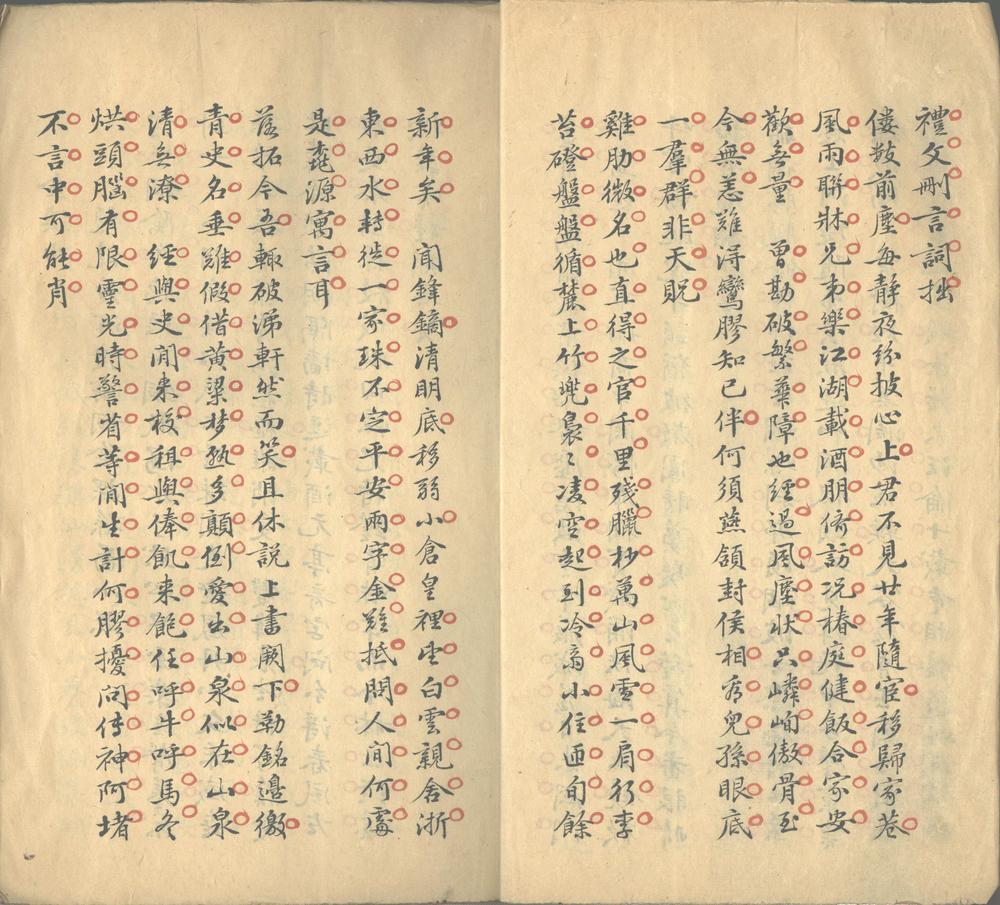 禮文刪言詞拙
僂數前塵每靜夜紛披心上君不見廿年隨宦移歸家巷
風雨聯牀兄弟樂江湖載酒朋儕訪况椿庭健飯合家安
歡無量　曾勘破繁華障也經過風塵狀只嶙峋傲骨至
今無恙難淂鸞膠知已伴何須燕頷封侯相看兒孫眼底
一羣群非天貺
雞肋微名也直得之官千里殘臘杪萬山風雪一肩行李
苔磴盤盤循麓上竹兜裊〻凌空起到冷衙小住匝旬餘
新年矣　聞鋒鏑清明底移弱小倉皇裡望白雲親舍浙
東西水轉徙一家珠不定平安兩字金難抵問人間何處
是桃源寓言耳
落拓今吾輙破涕軒然而笑且休説上書闕下勒銘邊徼
青史名垂難假借黄粱梦熟多顛倒愛出山泉似在山泉
清無潦　經與史閒来校租與俸飢来飽任呼牛呼馬冬
烘頭腦有限靈光時警省等閒生計何膠擾问傳神阿堵
不言中可能肖